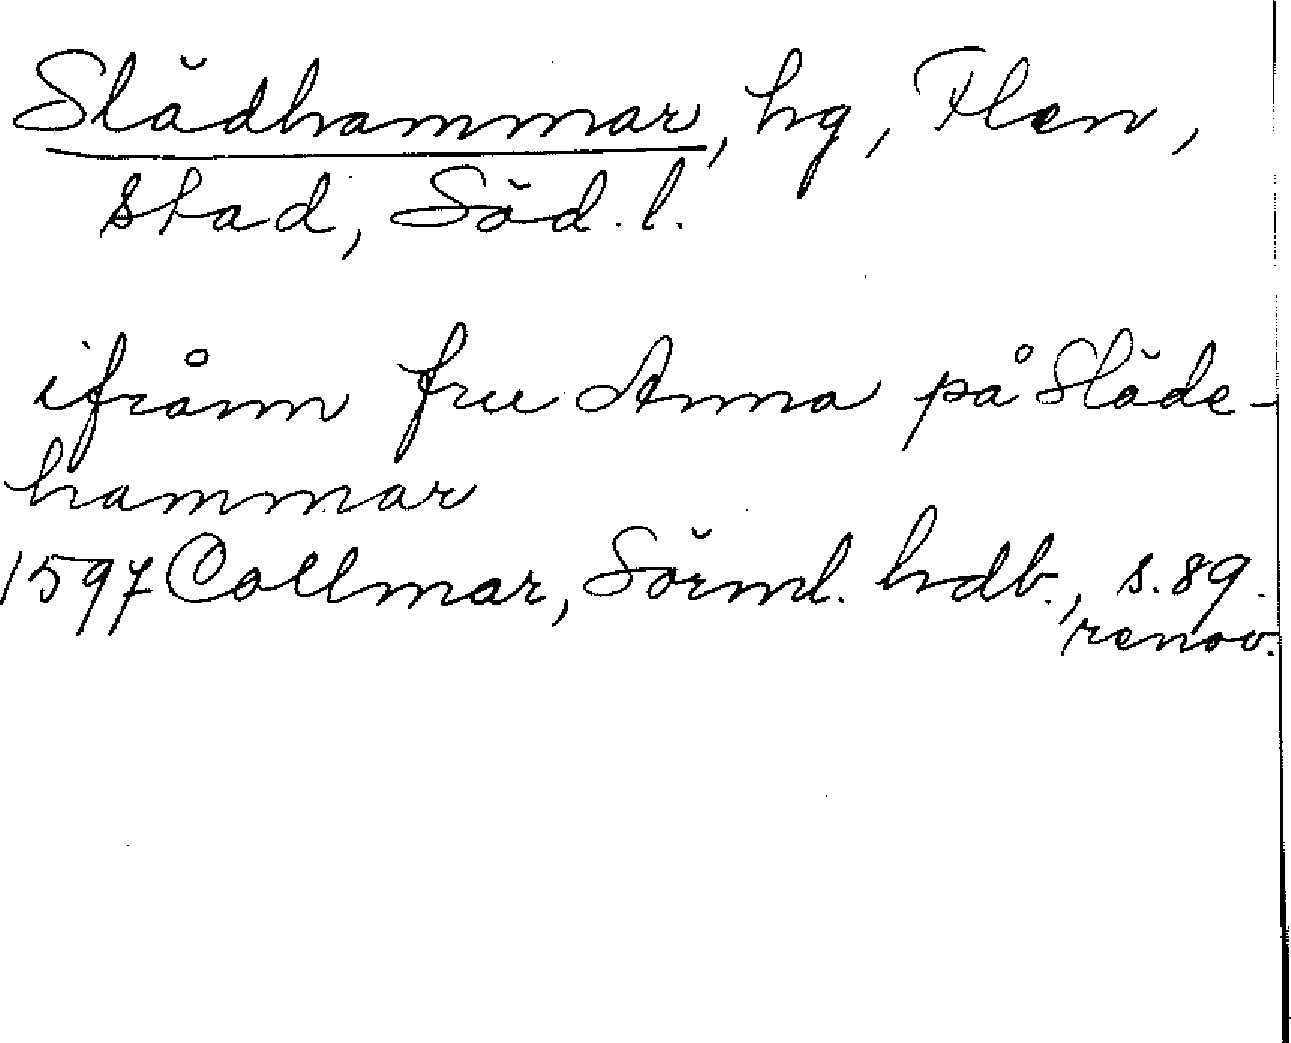 Slädhammar, hg, Flen,
stad, Söd. l.
ifrånn fru Anna på Släde-
hammar
1597 Collmar, Sörml. hdb., s. 89.
renov.